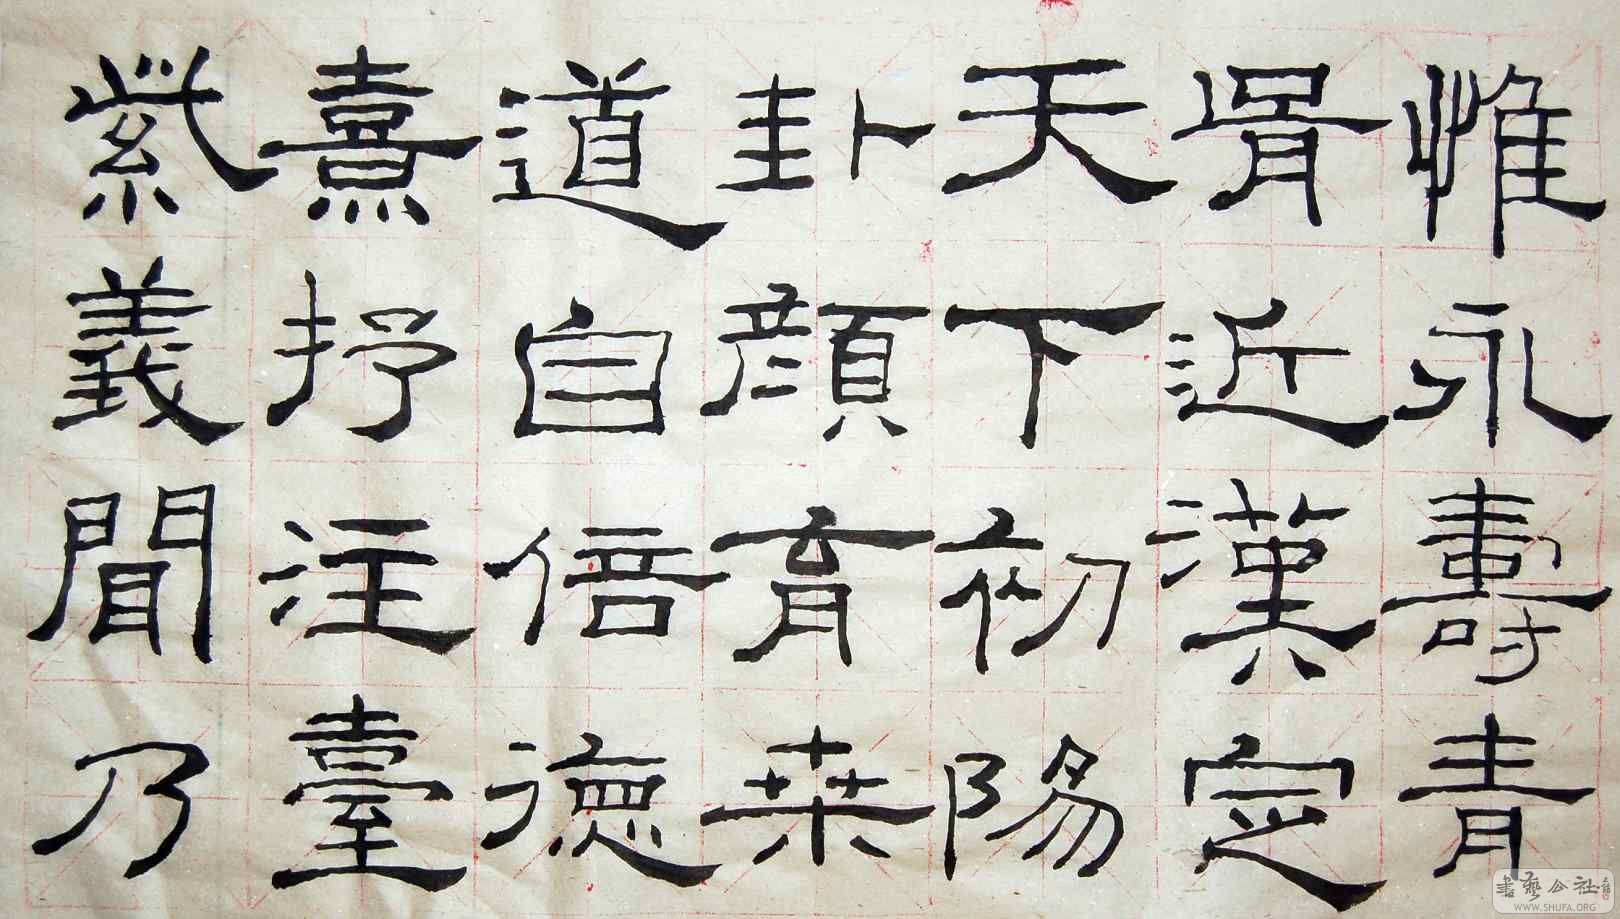 惟永壽青
胥近漢定
天下初陽
卦顏育桒
道自倍德
熹抒注臺
紫義聞乃
書藝公社
WWW.SHUFA.ORG